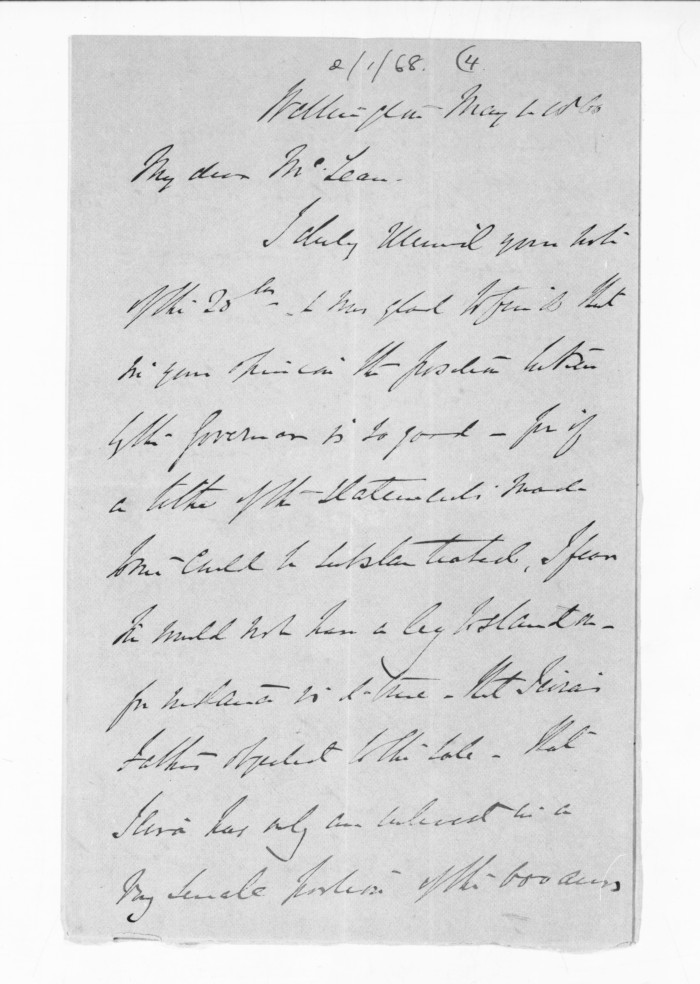 2/1/68. (4.
Wellington May 1. 1860
My dear McLean.
I duly received your note
of the 20th & was glad to find that
in your opinion the position taken
by the Governor is so good - for if
a tithe of the statements made
to me could be substantiated, I fear
He would not have a leg to stand on -
for instance is it true - that Teira's
Father objected to the sale - that
Teira has only an interest in a
very small portion of the 600 acres